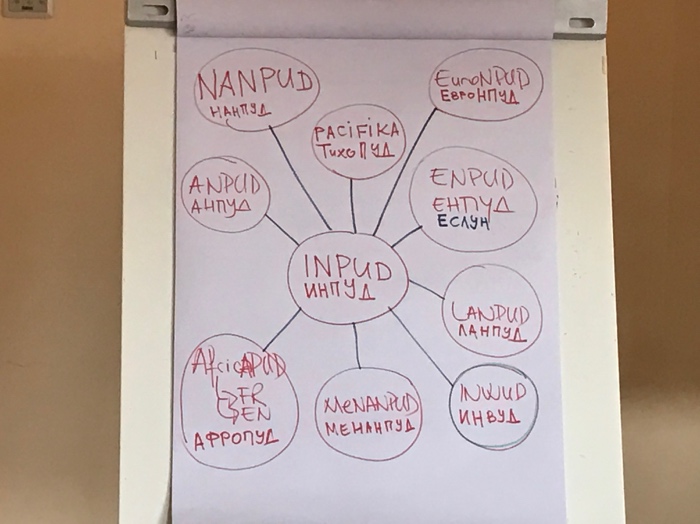 NANPUD
НАНПУД
EuroNPUD
ЕВРОНПУД
PACIFIKA
ТихоПУД
ANPUD
АНПУД
ENPUD
ЕНПУД
ЕСЛУН
INPUD
ИНПУД
LANPUD
ЛАНПУД
AfricAPUD
FR
EN
АФРОПУД
MeNANPUD
МЕНАНПУД
INWUD
ИНВУД